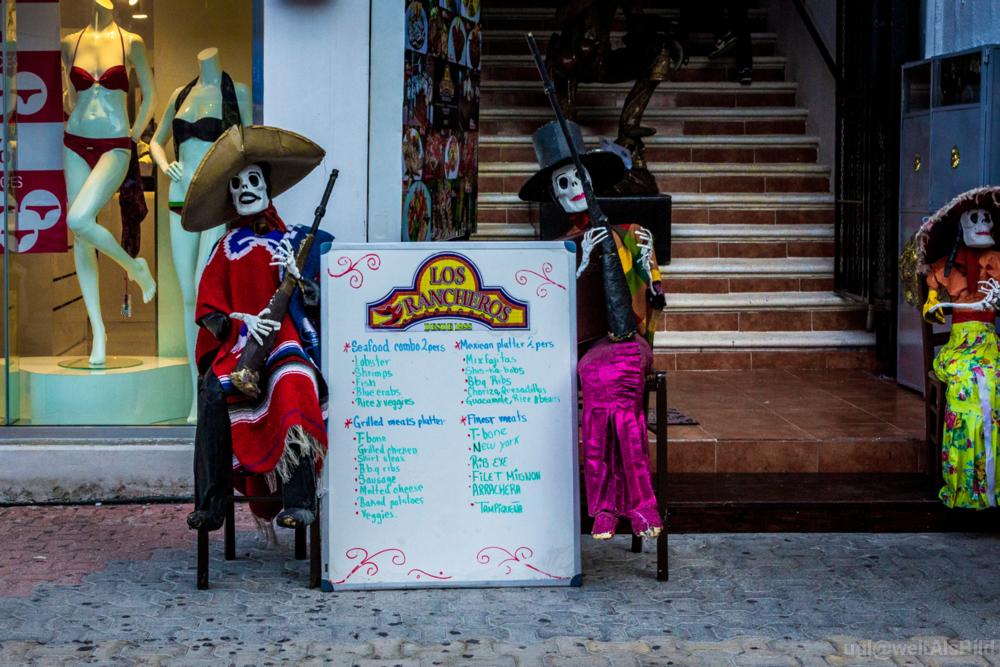 LOS
RANCHEROS
DESDE 1988
*Seafood combo 2pers
·Lobster
·Shrimps
·Fish
·Blue crabs
·Rice & veggies
*Mexican platter 2pers
·Mix fajitas
·Shis-ka-babs
·Bbq Ribs
·Chorizo, Quesadillas
·Guacamole, Rice & beans
*Grilled meats platter
·T-bone
·Grilled chicken
·Skirt steak
·Bbq ribs
·Sausage
·Melted cheese
·Baked potatoes
·Veggies.
*Finest meats
·T-bone
·New york
·Rib eye
·Filet Mignon
·Arrachera
·Tampiqueña
ugl@weltAlsBild